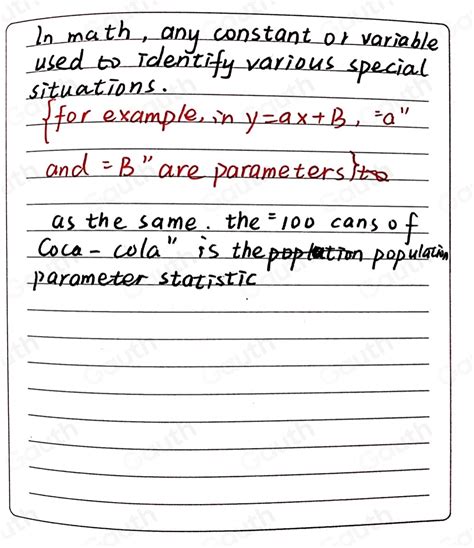 In math, any constant or variable
used to identify various special
situations.
{for example, in y=ax+B, "a"
and "B" are parameters} to
as the same. the "100 cans of
Coca-cola" is the popultion population
parameter statistic